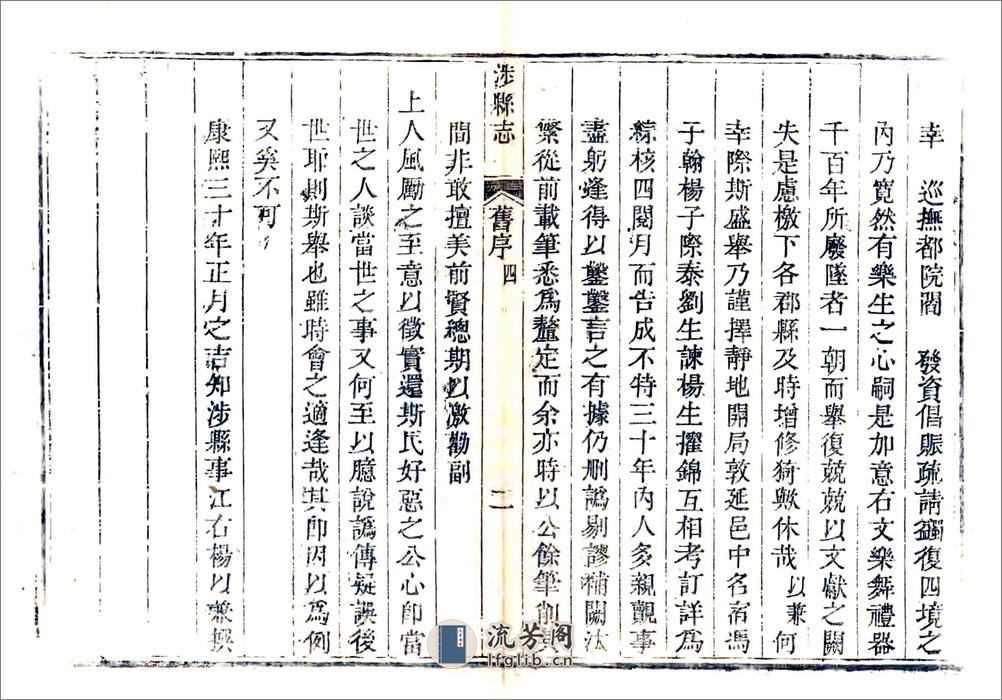 幸　巡撫都院閻　發資倡賑疏請蠲復四境之
內乃寬然有樂生之心嗣是加意右文樂舞禮器
千百年所廢墜者一朝而舉復兢兢以文獻之闕
失是慮檄下各郡縣及時增修猗歟休哉　以兼何
幸際斯盛舉乃謹擇靜地開局敦延邑中名宿馮
子翰楊子際泰劉生諫楊生擢錦互相考訂詳為
綜核四閱月而告成不特三十年內人多親覿事
盡躬逢得以鑿鑿言之有據仍刪譌剔謬補闕汰
繁從前載筆悉為釐定而余亦時以公餘筆削其
涉縣志　舊序　四　二
間非敢擅美前賢總期以激勸副
上人風勵之至意以徵實還斯民好惡之公心卽當
世之人談當世之事又何至以臆說譌傳疑誤後
世耶則斯舉也雖時會之適逢哉其卽因以為例
又奚不可
康熙三十年正月之吉知涉縣事江右楊以兼撰
流芳閣
lfglib.cn